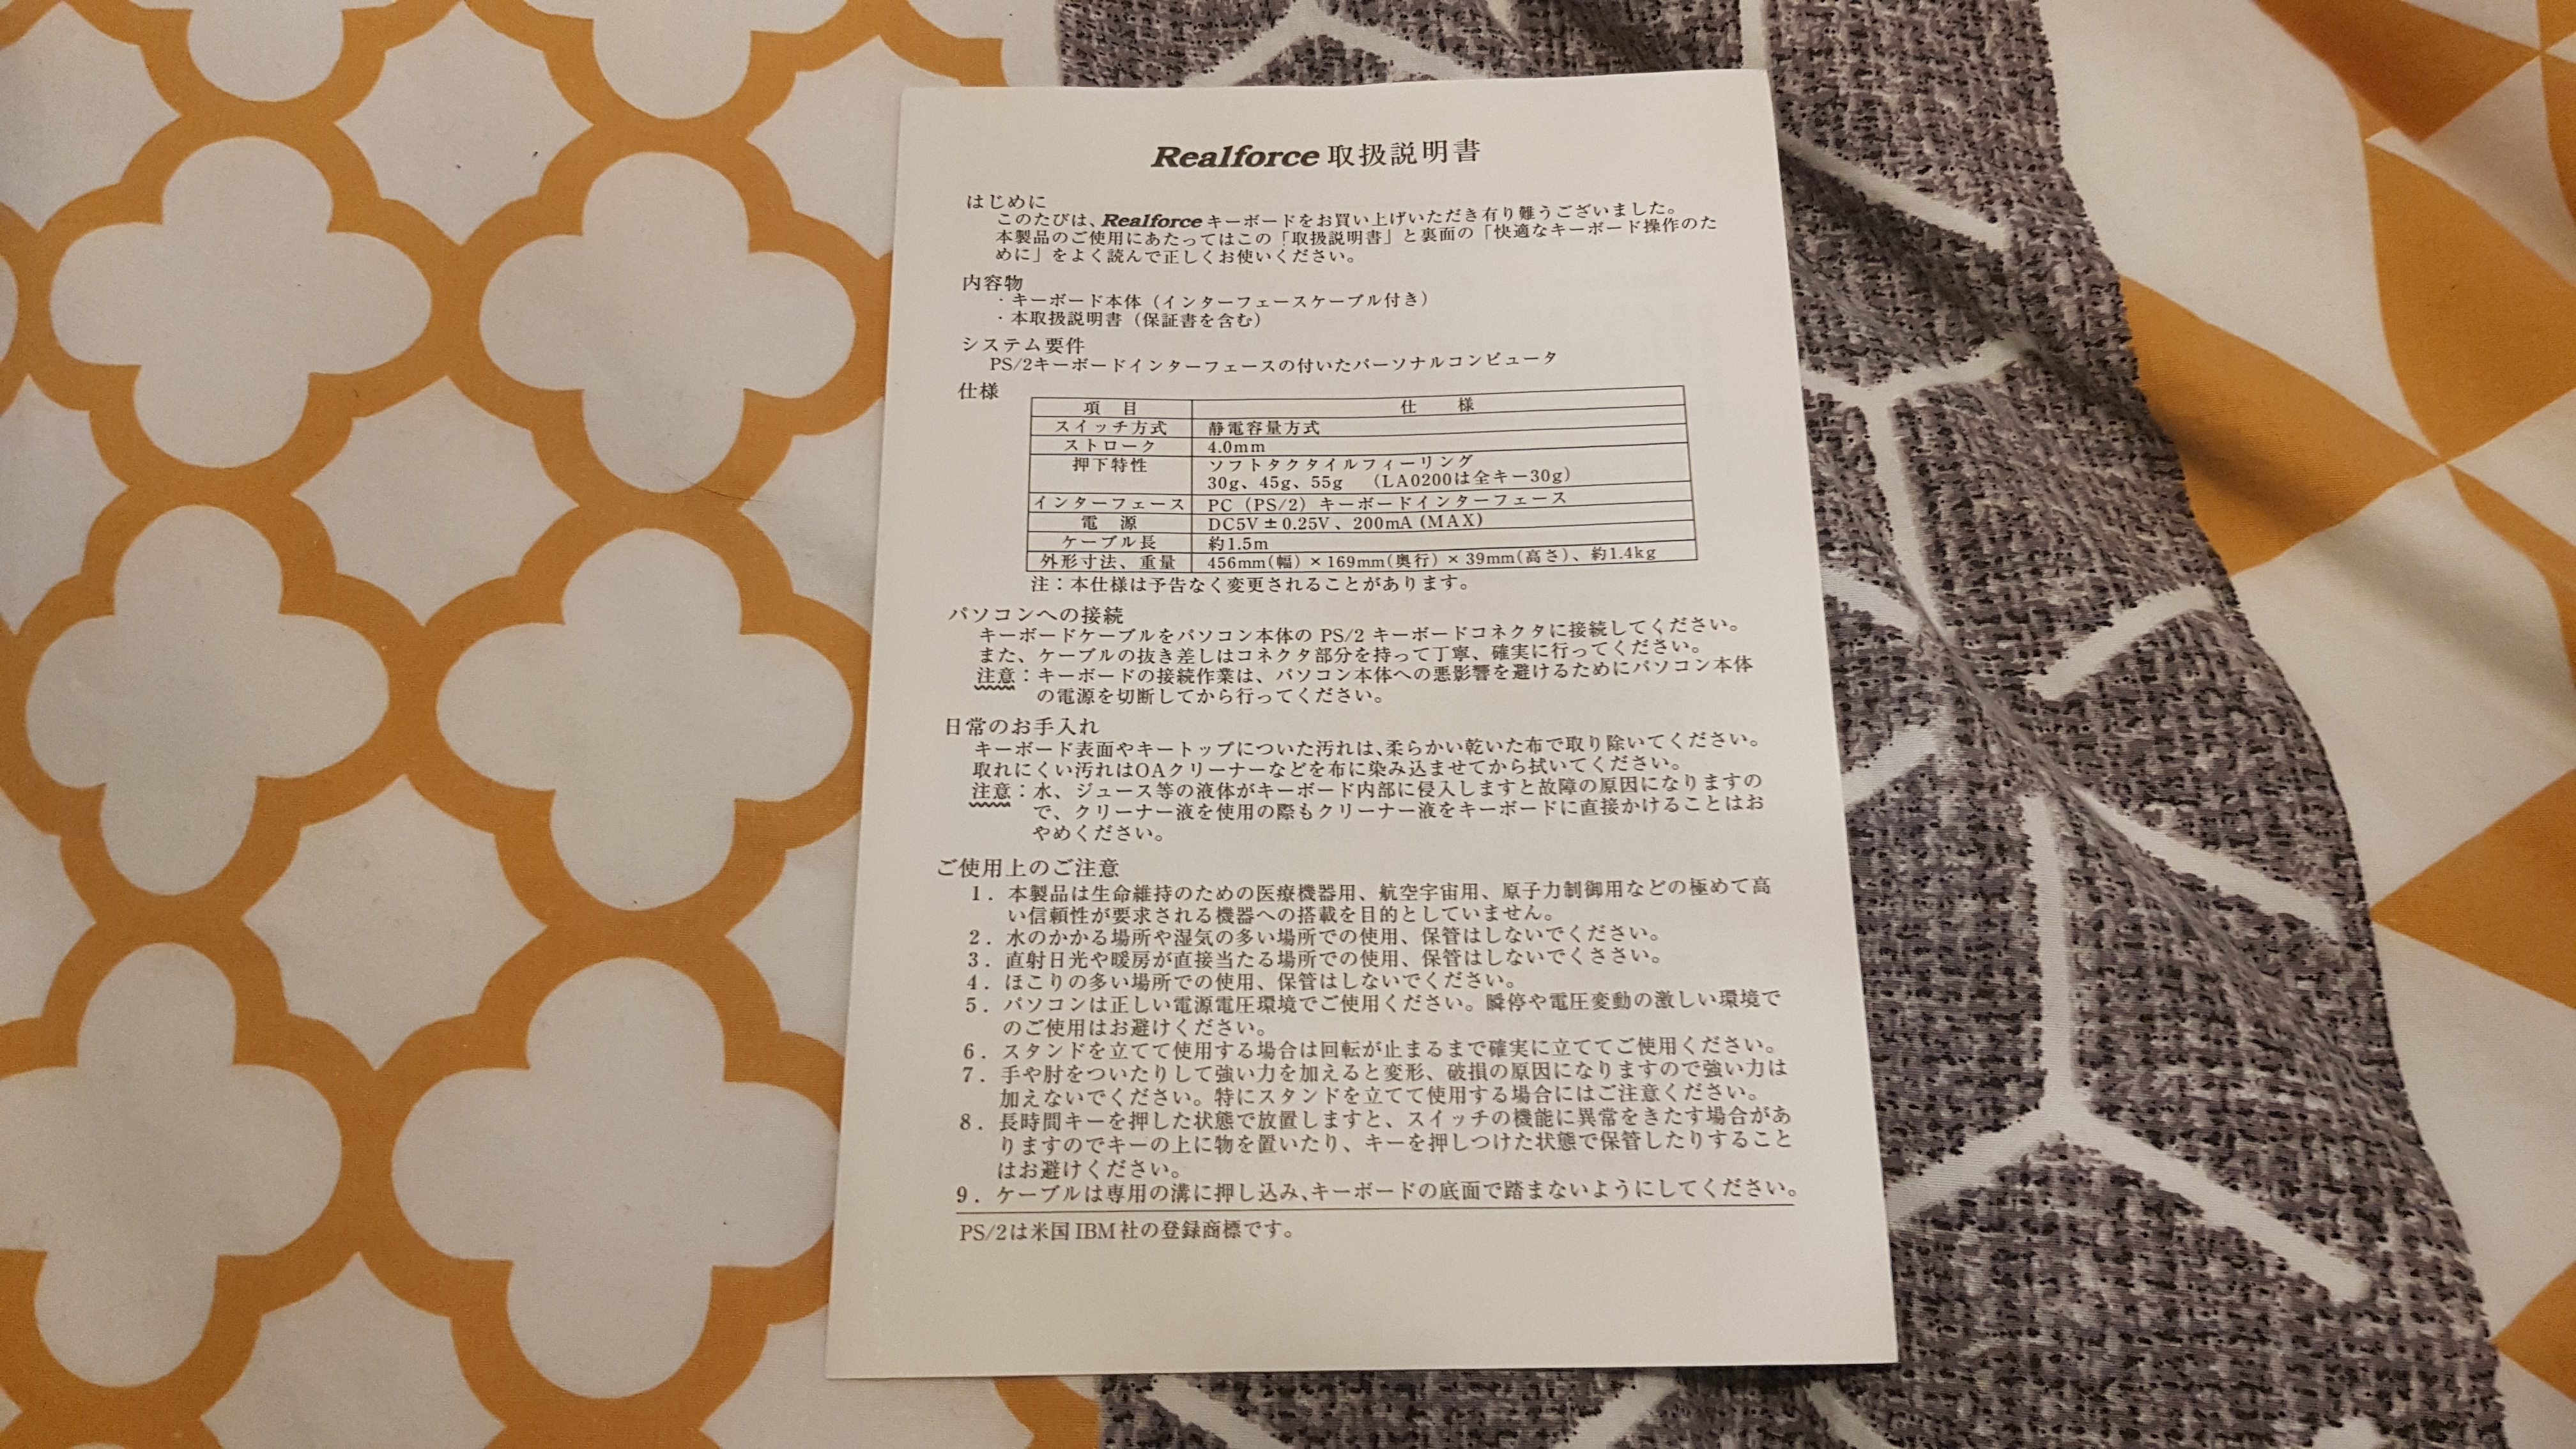 Realforce 取扱説明書
はじめに
このたびは、Realforce キーボードをお買い上げいただき有り難うございました。
本製品のご使用にあたってはこの「取扱説明書」と裏面の「快適なキーボード操作のた
めに」をよく読んで正しくお使いください。
内容物
・キーボード本体（インターフェースケーブル付き）
・本取扱説明書（保証書を含む）
システム要件
PS/2キーボードインターフェースの付いたパーソナルコンピュータ
仕様
項　目　仕　　様
スイッチ方式　静電容量方式
ストローク　4.0mm
押下特性　ソフトタクタイルフィーリング
30g、45g、55g　（LA0200は全キー30g）
インターフェース　PC（PS/2）キーボードインターフェース
電　源　DC5V±0.25V、200mA (MAX)
ケーブル長　約1.5m
外形寸法、重量　456mm(幅)×169mm(奥行)×39mm(高さ)、約1.4kg
注：本仕様は予告なく変更されることがあります。
パソコンへの接続
キーボードケーブルをパソコン本体の PS/2 キーボードコネクタに接続してください。
また、ケーブルの抜き差しはコネクタ部分を持って丁寧、確実に行ってください。
注意：キーボードの接続作業は、パソコン本体への悪影響を避けるためにパソコン本体
の電源を切断してから行ってください。
日常のお手入れ
キーボード表面やキートップについた汚れは、柔らかい乾いた布で取り除いてください。
取れにくい汚れはOAクリーナーなどを布に染み込ませてから拭いてください。
注意：水、ジュース等の液体がキーボード内部に侵入しますと故障の原因になりますの
で、クリーナー液を使用の際もクリーナー液をキーボードに直接かけることはお
やめください。
ご使用上のご注意
1．本製品は生命維持のための医療機器用、航空宇宙用、原子力制御用などの極めて高
い信頼性が要求される機器への搭載を目的としていません。
2．水のかかる場所や湿気の多い場所での使用、保管はしないでください。
3．直射日光や暖房が直接当たる場所での使用、保管はしないでくささい。
4．ほこりの多い場所での使用、保管はしないでください。
5．パソコンは正しい電源電圧環境でご使用ください。瞬停や電圧変動の激しい環境で
のご使用はお避けください。
6．スタンドを立てて使用する場合は回転が止まるまで確実に立ててご使用ください。
7．手や肘をついたりして強い力を加えると変形、破損の原因になりますので強い力は
加えないでください。特にスタンドを立てて使用する場合にはご注意ください。
8．長時間キーを押した状態で放置しますと、スイッチの機能に異常をきたす場合があ
りますのでキーの上に物を置いたり、キーを押しつけた状態で保管したりすること
はお避けください。
9．ケーブルは専用の溝に押し込み、キーボードの底面で踏まないようにしてください。
PS/2は米国 IBM 社の登録商標です。